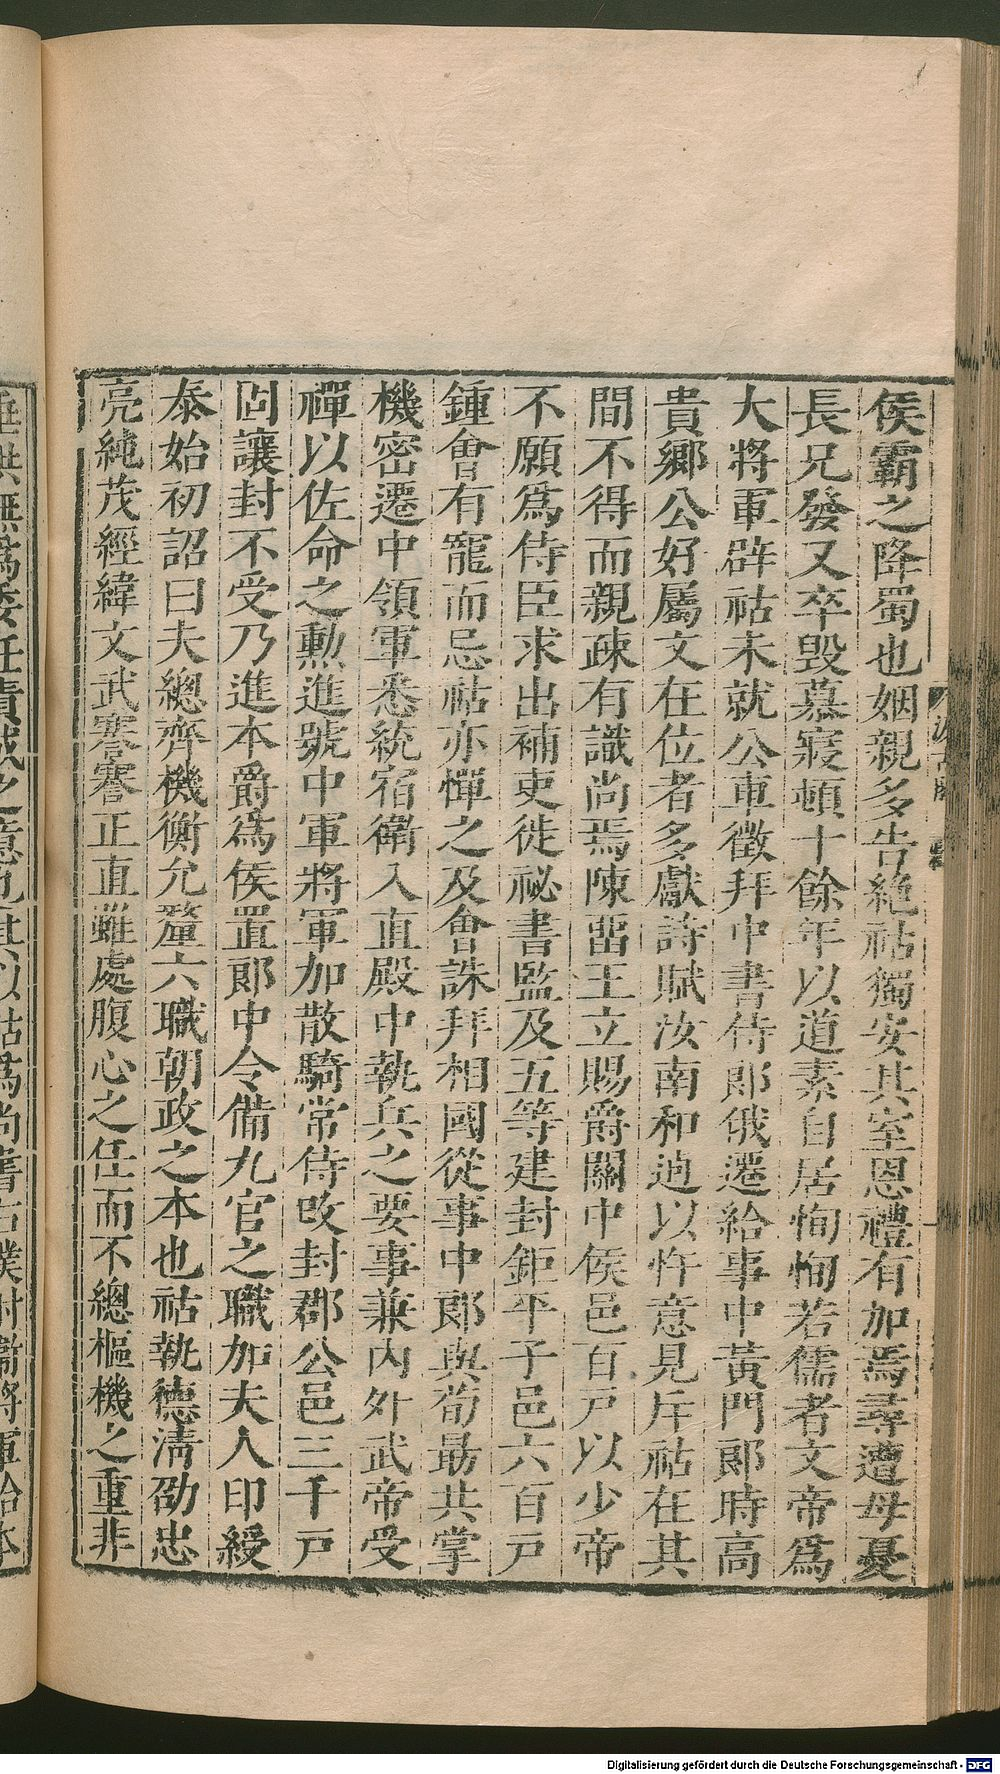 侯霸之降蜀也姻親多告絶祜獨安其室恩禮有加焉尋遭母憂
長兄發又卒毀慕寢頓十餘年以道素自居恂恂若儒者文帝爲
大將軍辟祜未就公車徵拜中書侍郎俄遷給事中黃門郎時高
貴鄉公好屬文在位者多獻詩賦汝南和逌以忤意見斥祜在其
間不得而親疎有識尚焉陳畱王立賜爵關中侯邑百戸以少帝
不願爲侍臣求出補吏徙祕書監及五等建封鉅平子邑六百戸
鍾會有寵而忌祜亦憚之及會誅拜相國從事中郎與荀勗共掌
機密遷中領軍悉統宿衛入直殿中執兵之要事兼內外武帝受
禪以佐命之勲進號中軍將軍加散騎常侍改封郡公邑三千戸
固讓封不受乃進本爵爲侯置郎中令備九官之職加夫人印綬
泰始初詔曰夫總齊機衡允釐六職朝政之本也祜執德淸劭忠
亮純茂經緯文武謇謇正直雖處腹心之任而不總樞機之重非
垂拱無爲委任責成之意也其以祜爲尚書右僕射衞將軍給本
Digitalisierung gefördert durch die Deutsche Forschungsgemeinschaft - DFG